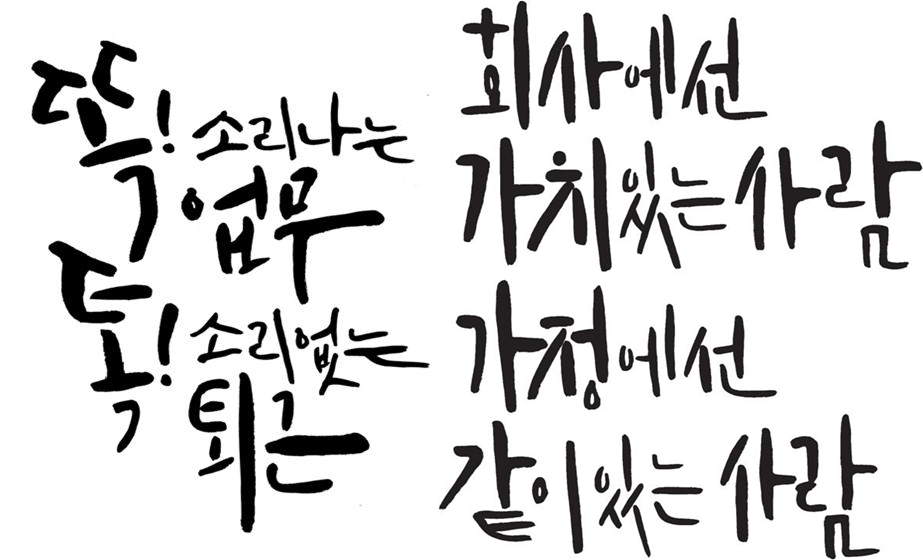 똑! 소리나는
업무
톡! 소리없는
퇴근
회사에선
가치있는 사람
가정에선
같이있는 사람